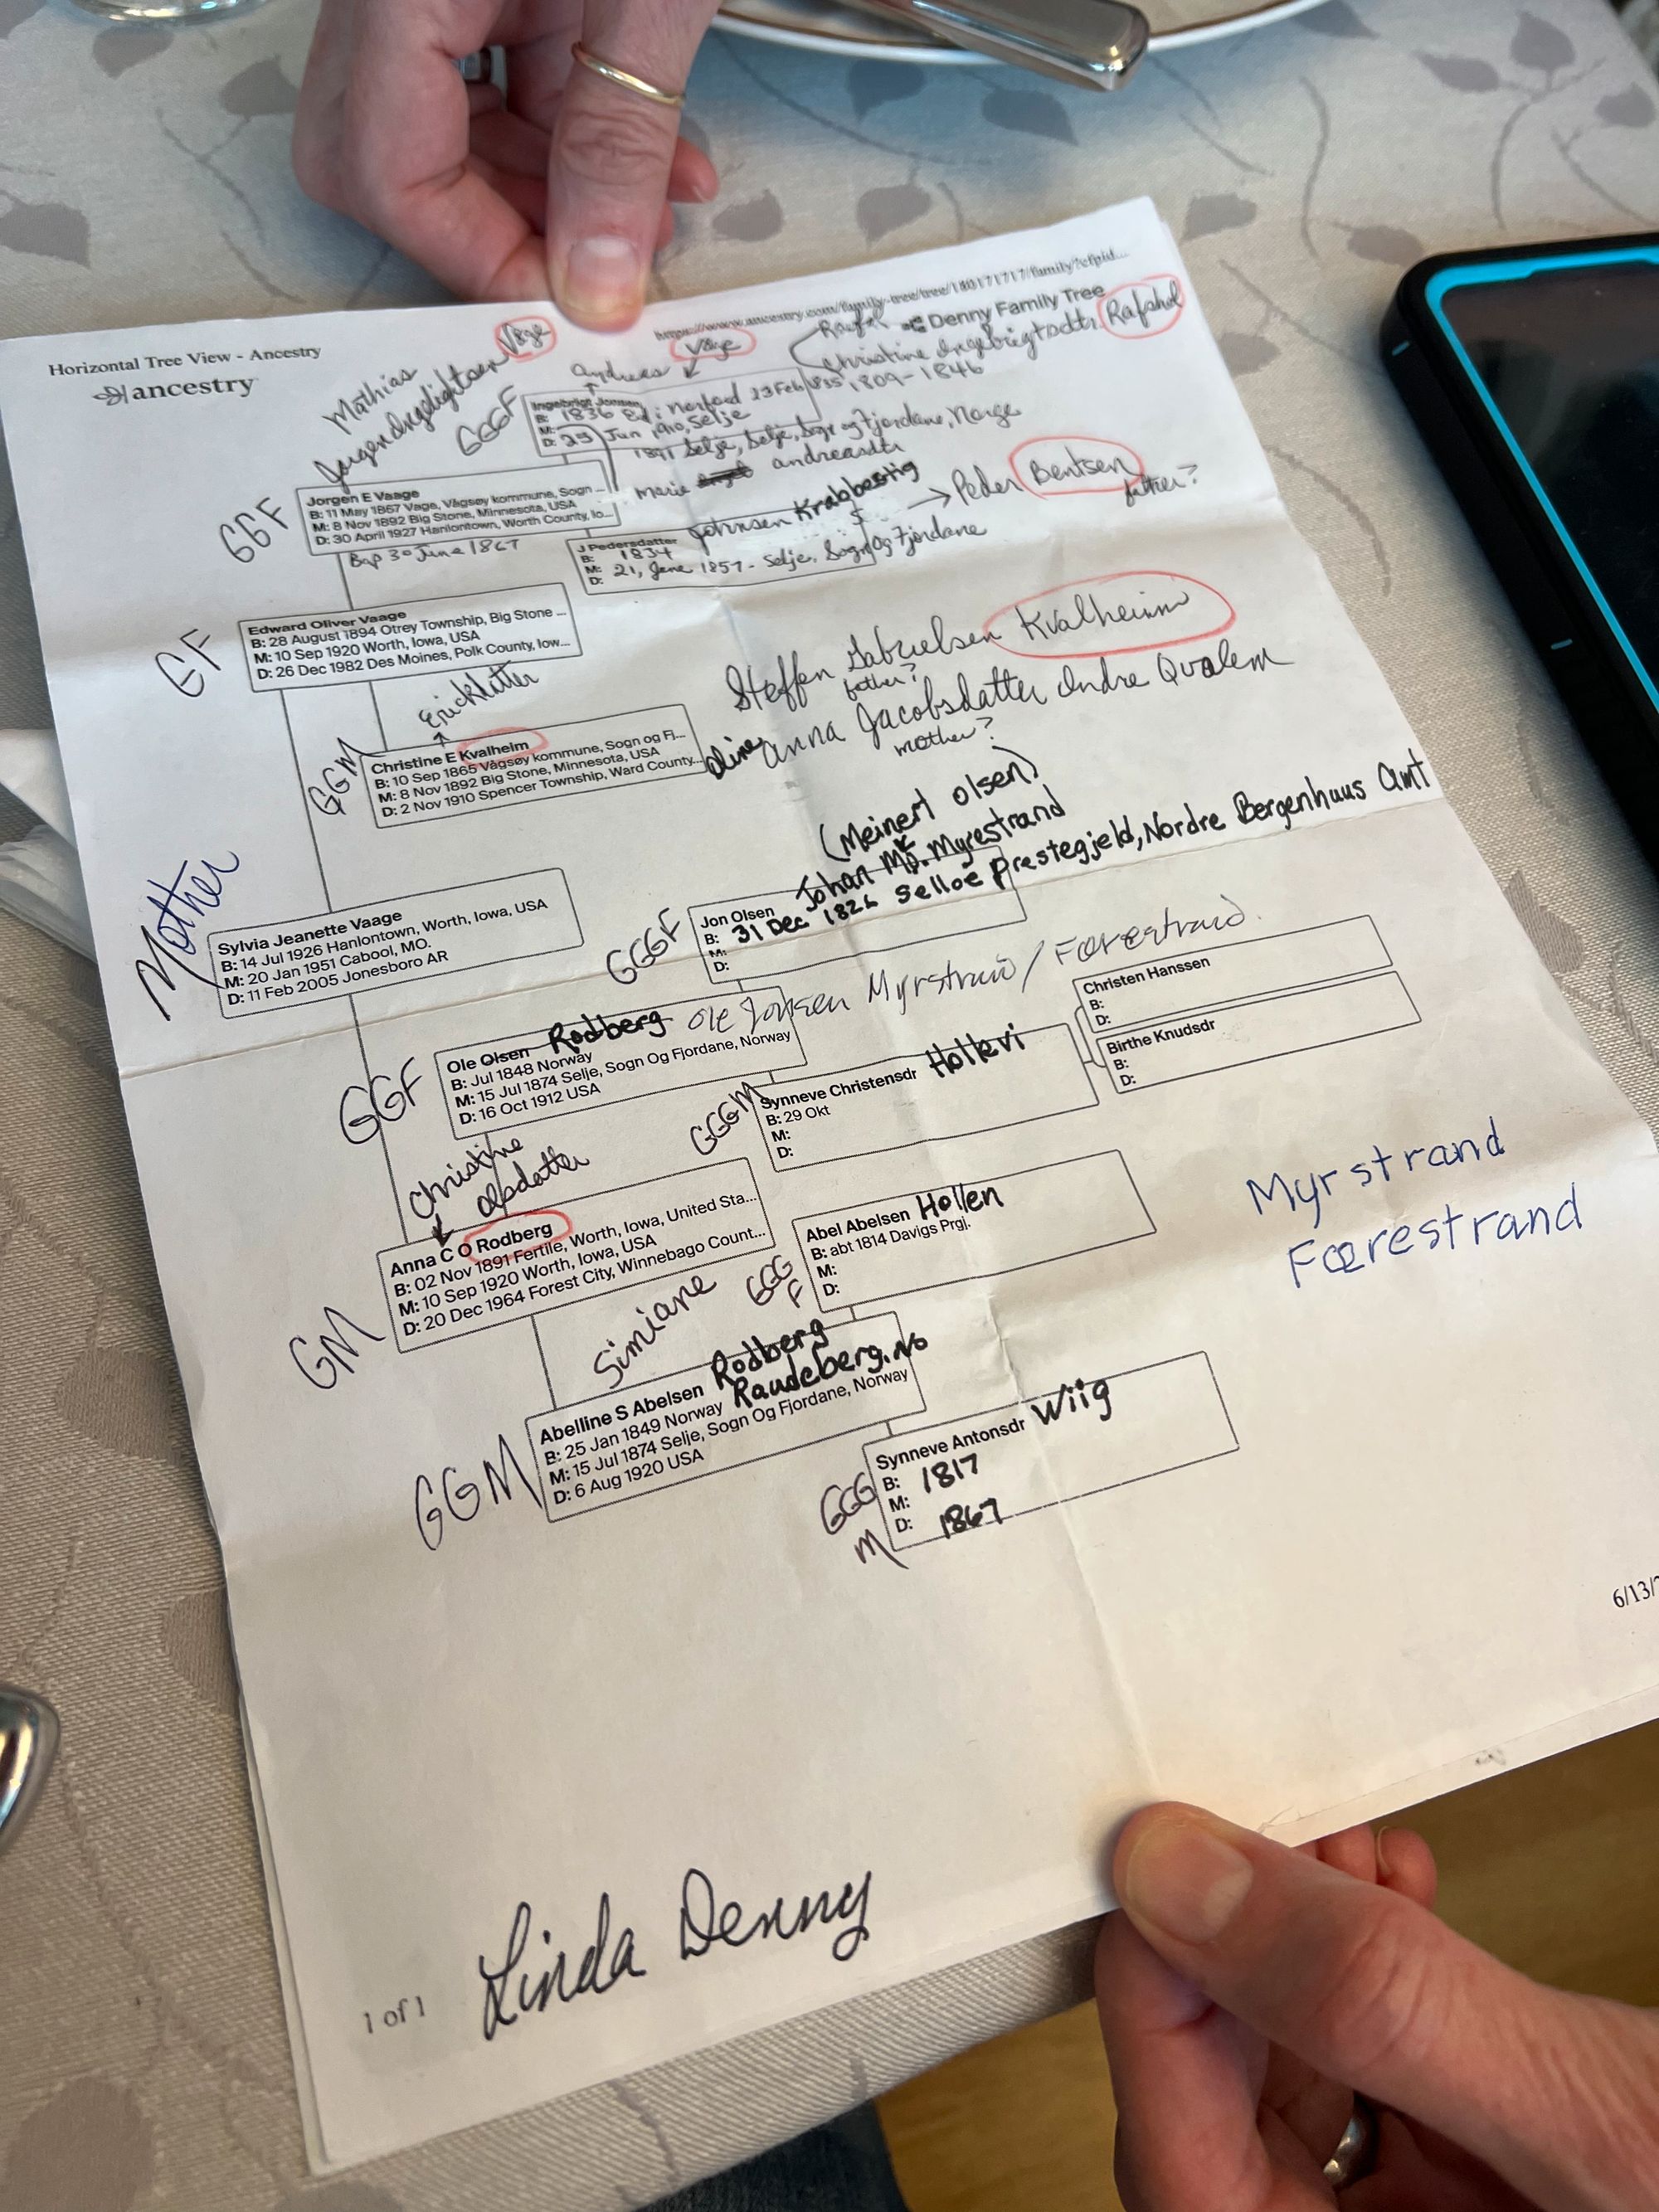 Horizontal Tree View - Ancestry
https://www.ancestry.com/family-tree/tree/180171717/family?cfpid...
ancestry
Denny Family Tree
Våge
Våge
Rafshol
Christine Ingebrigtsdtr.
1809-1846
Mathias
Andreas
GGGF
Ingebrigt Jonsen
B: 1836
23 Feb 1835
M:
D: 29 Jun 1910, Selje
1891 Selje, Selje, Sogn og Fjordane, Norge
Marie
andreasdtr
GGF
Jorgen E Vaage
B: 11 May 1867 Vaga, Vågsøy kommune, Sogn ...
M: 8 Nov 1892 Big Stone, Minnesota, USA
D: 30 April 1927 Hanlontown, Worth County, Io...
Bap 30 June 1867
Johnsen Krabbestig
Peder Bentsen
father?
J Pedersdatter
B: 1834
M: 21, June 1857 - Selje, Sogn Og Fjordane
D:
GF
Edward Oliver Vaage
B: 28 August 1894 Otrey Township, Big Stone ...
M: 10 Sep 1920 Worth, Iowa, USA
D: 26 Dec 1982 Des Moines, Polk County, Iow...
Steffen Gabrielsen Kvalheim
father?
Anna Jacobsdatter Indre Qvalem
mother?
Ericklatter
GGM
Christine E Kvalheim
B: 10 Sep 1865 Vågsøy kommune, Sogn og Fj...
M: 8 Nov 1892 Big Stone, Minnesota, USA
D: 2 Nov 1910 Spencer Township, Ward County...
Oline
(Meinert Olsen)
Johan Mp. Myrestrand
Mother
Sylvia Jeanette Vaage
B: 14 Jul 1926 Hanlontown, Worth, Iowa, USA
M: 20 Jan 1951 Cabool, MO.
D: 11 Feb 2005 Jonesboro AR
GGGF
Jon Olsen
B: 31 Dec 1826 Selloe Prestegjeld, Nordre Bergenhuus Amt
M:
D:
GGF
Ole Olsen Rodberg Ole Jonsen Myrstrand / Færestrand.
B: Jul 1848 Norway
M: 15 Jul 1874 Selje, Sogn Og Fjordane, Norway
D: 16 Oct 1912 USA
Christen Hanssen
B:
D:
Birthe Knudsdr
B:
D:
GGGM
Synneve Christensdr Holkvi
B: 29 Okt
M:
D:
Christine
olsdatter
GM
Anna C O Rodberg
B: 02 Nov 1891 Fertile, Worth, Iowa, United Sta...
M: 10 Sep 1920 Worth, Iowa, USA
D: 20 Dec 1964 Forest City, Winnebago Count...
Myrstrand
Færestrand
GGG
F
Abel Abelsen Hollen
B: abt 1814 Davigs Prgj.
M:
D:
Simiane
GGM
Abelline S Abelsen Rodberg
Raudeberg, No
B: 25 Jan 1849 Norway
M: 15 Jul 1874 Selje, Sogn Og Fjordane, Norway
D: 6 Aug 1920 USA
GGG
M
Synneve Antonsdr Wiig
B: 1817
M:
D: 1867
6/13/
1 of 1
Linda Denny